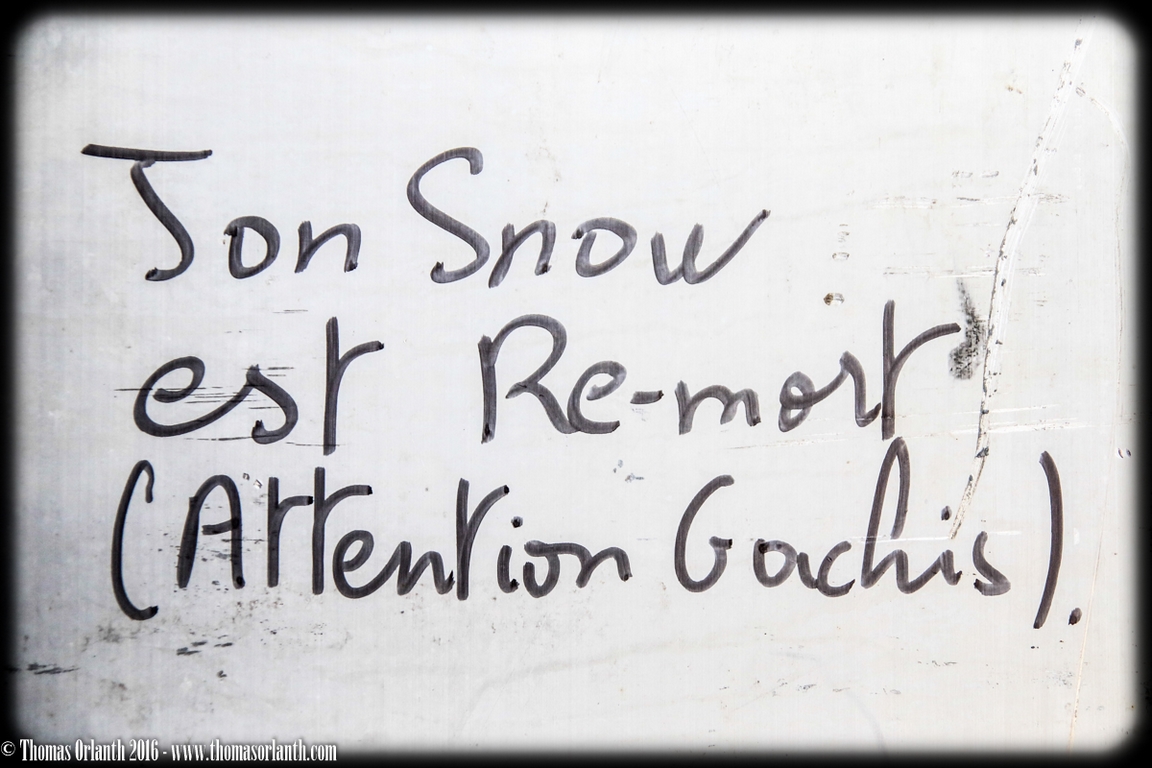 Jon Snow
est Re-mort
(Attention Gachis).
© Thomas Orlanth 2016 - www.thomasorlanth.com